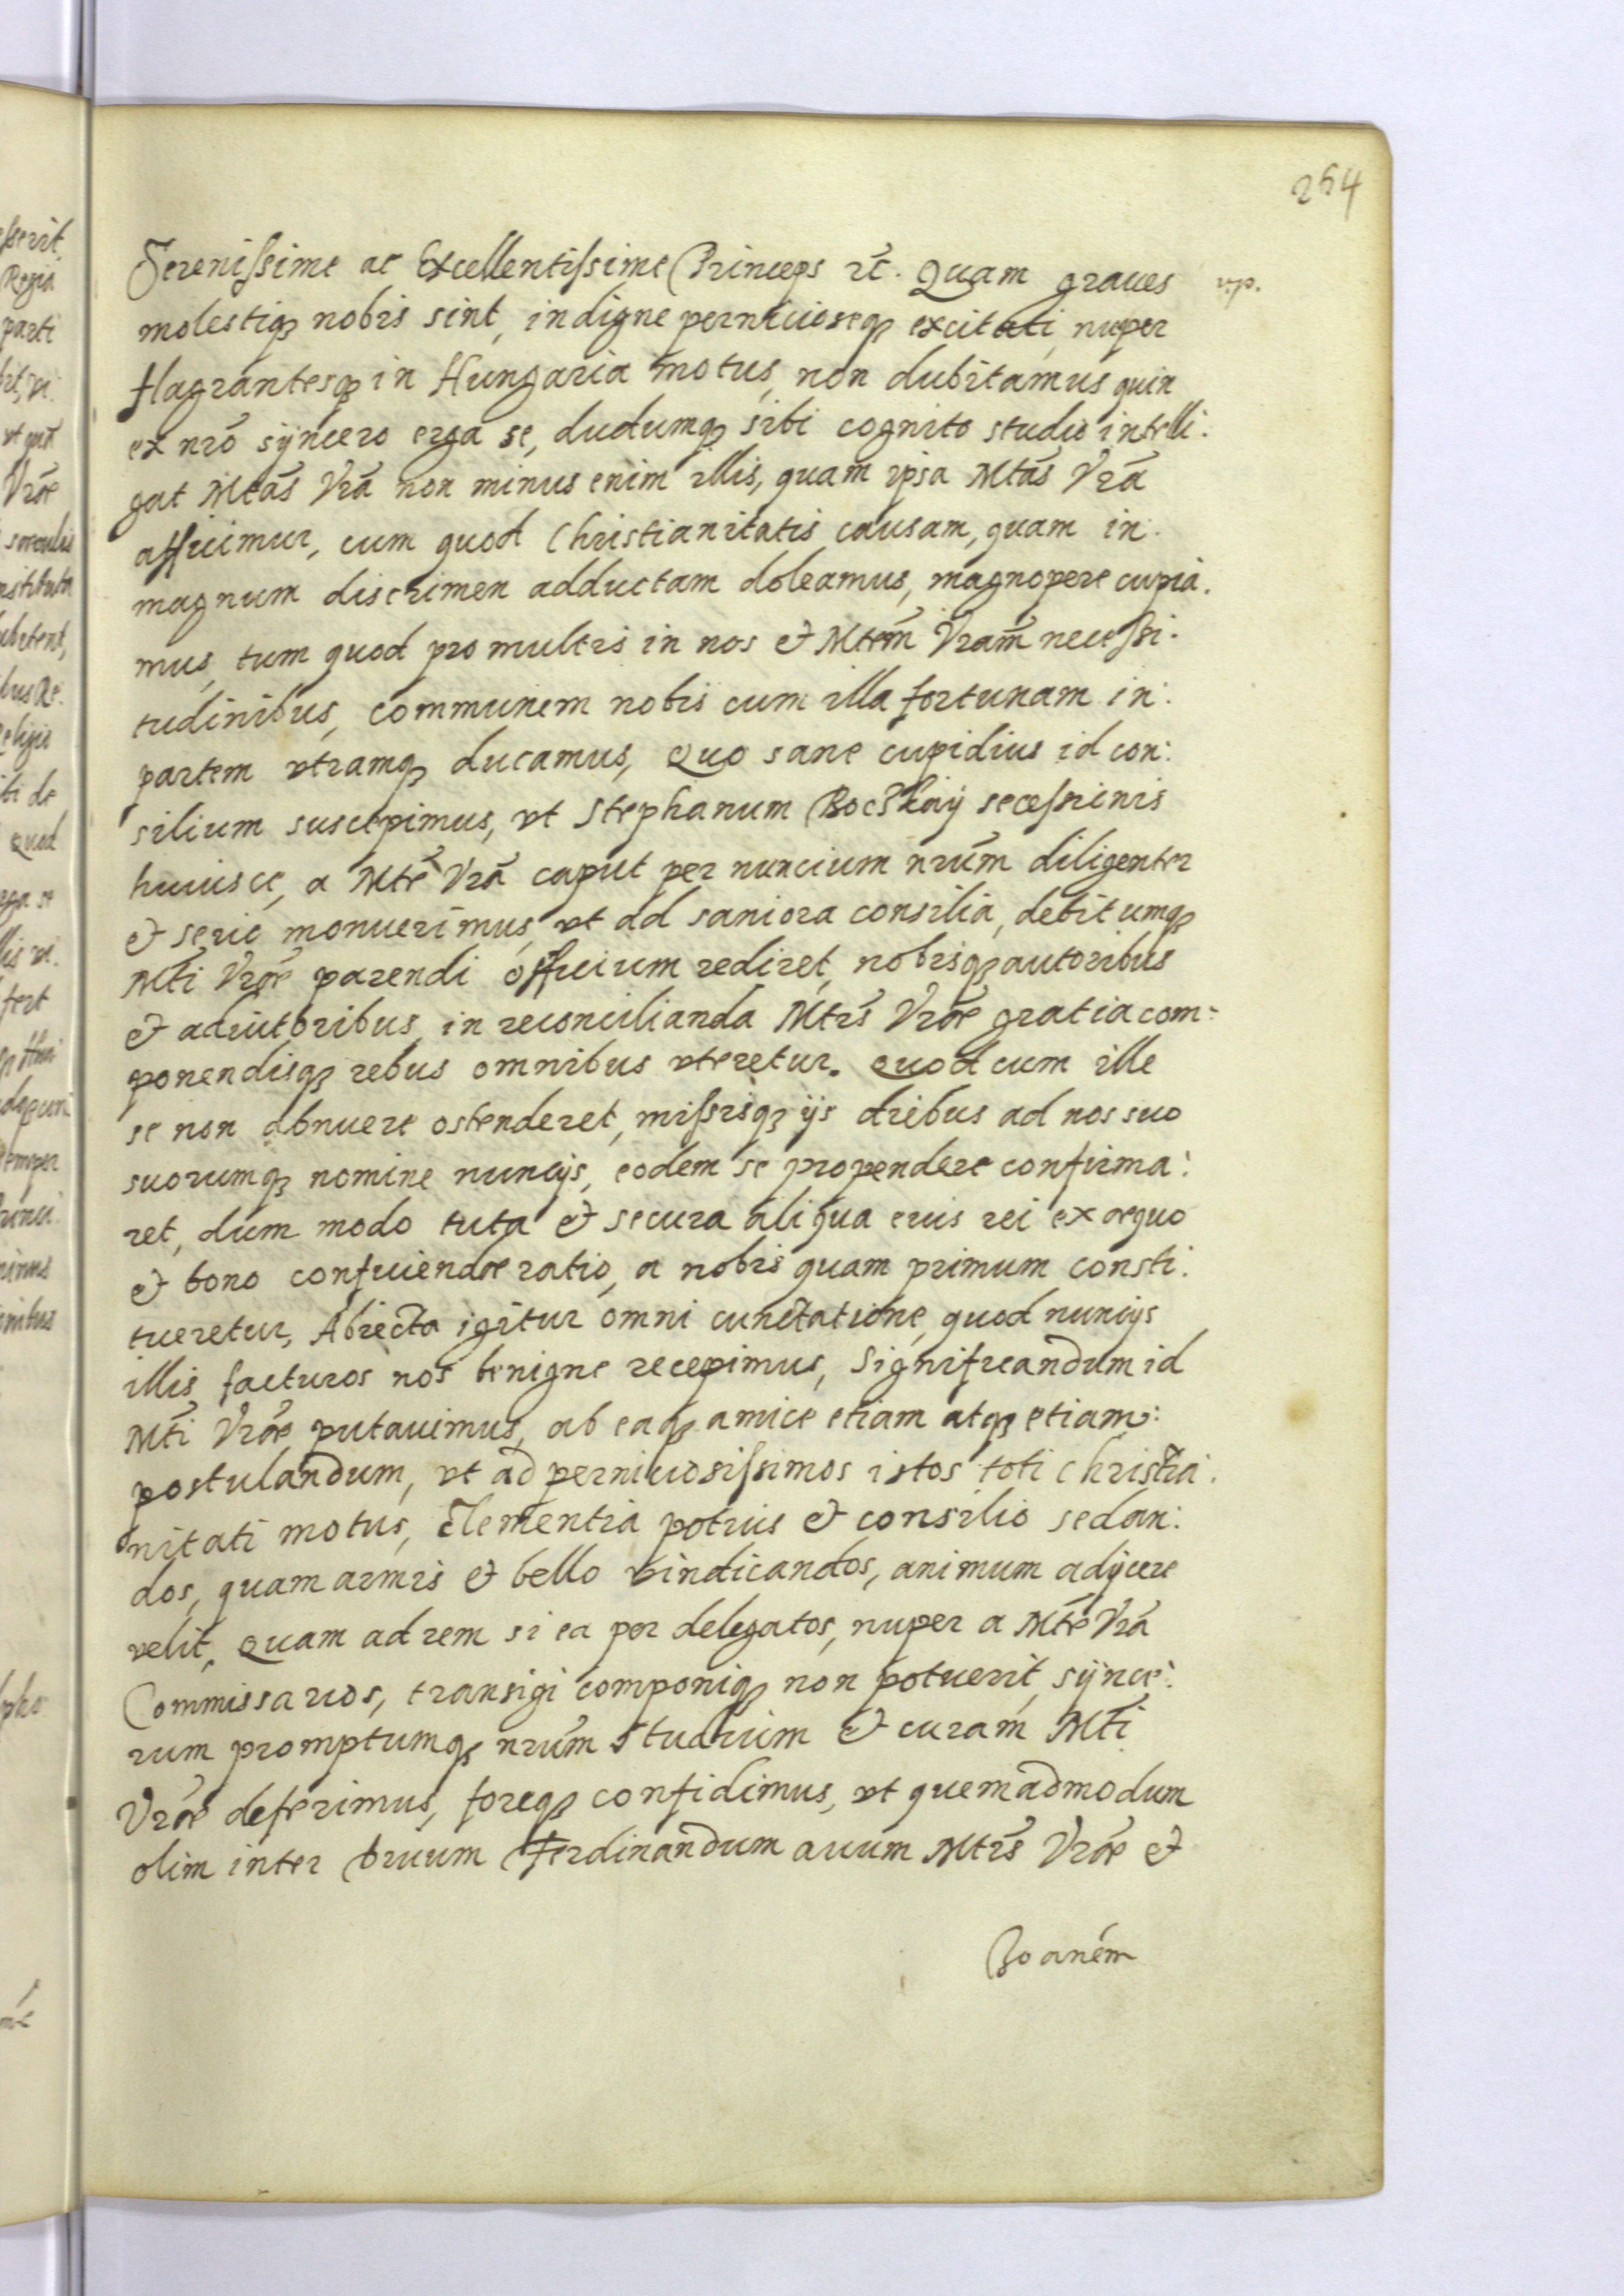 264
Serenissime ac Excellentissime Princeps rc̄. Quam graues
v.p.
molestiq₃ nobis sint, indigne pernicioseq₃ excitati nuper
flagrantesq₃ in Hungaria motus, non dubitamus quin
ex nr̃o sÿncero erga se, dudumq₃ sibi cognito studio intelli:
gat Mtas̃ Vrã non minus enim illis, quam ipsa Mtas̃ Vrã
afficimur, cum quod Christianitatis causam, quam in:
magnum discrimen adductam doleamus, magnopere cupia:
mus, tum quod pro multis in nos & Mtem̃ Vram̃ necessi:
tudinibus, communem nobis cum illa fortunam in:
partem vtramq₃ ducamus, Quo sane cupidius id con:
silium suscepimus, vt Stephanum Bocskaÿ secessionis
huiusce, a Mtẽ Vrã caput per nuncium nrũm diligenter
& serio monuerimus vt ad saniora consilia, debitumq₃
Mtĩ Vrãe parendi officium rediret, nobisq₃ autoribus
& adiutoribus, in reconcilianda Mtis̃ Vrãe gratia com:
ponendisq₃ rebus omnibus vteretur. Quod cum ille
se non abnuere ostenderet, missisq₃ ijs diebus ad nos suo
suorumq₃ nomine nuncijs, eodem se propendere confirma:
ret, dum modo tuta & secura aliqua eius rei ex aequo
& bono conficiendae ratio, a nobis quam primum consti:
tueretur, Abiecta igitur omni cunctatione, quod nuncijs
illis facturos nos benigne recepimus, Significandum id
Mtĩ Vrãe putauimus, ab eaq₃ amice etiam atq₃ etiam:
postulandum, vt ad perniciosissimos istos toti Christia:
nitati motus, Clementia potius & consilio sedan:
dos, quam armis & bello vindicandos, animum adijcere
velit, Quam ad rem si ea per delegatos, nuper a Mtẽ Vrã
Commissarios, transigi componiq₃ non potuerit, sÿnce:
rum promptumq₃ nrũm studium & curam Mtĩ
Vrãe deferimus, foreq₃ confidimus, vt quemadmodum
olim inter Diuum Ferdinandum auum Mtis̃ Vrãe &
Joaném